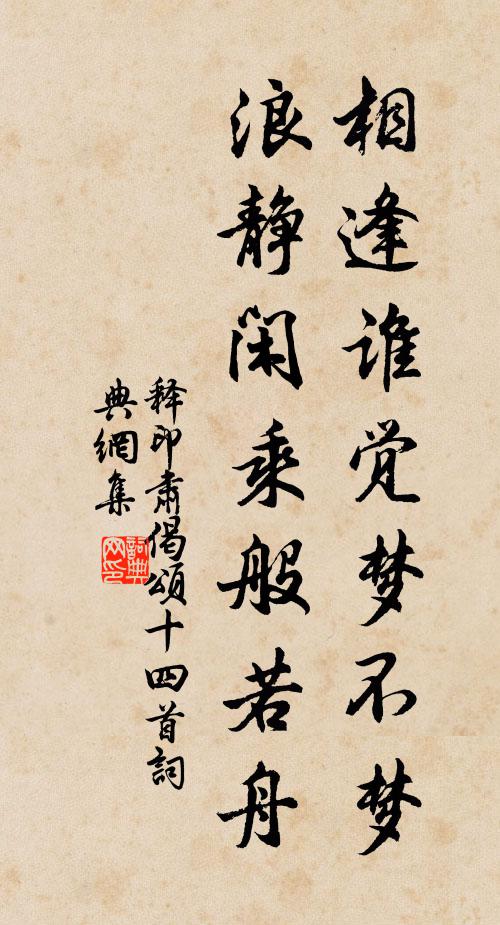 相逢谁觉梦不梦
浪静闲乘般若舟
释印肃偈颂十四首詞
典網集
詞典
网印